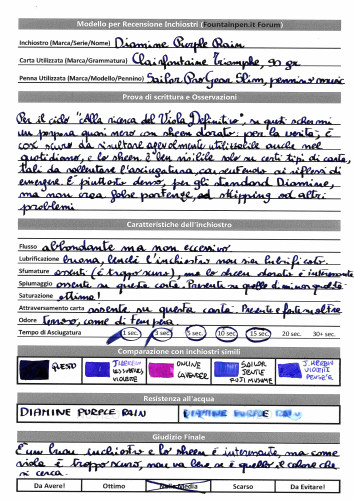 Modello per Recensione Inchiostri (Fountainpen.it Forum)
Inchiostro (Marca/Serie/Nome) Diamine Purple Rain
Carta Utilizzata (Marca/Grammatura) Clairefontaine Triomphe, 90 gr
Penna Utilizzata (Marca/Modello/Pennino) Sailor ProGear Slim, pennino music
Prova di scrittura e Osservazioni
Per il ciclo "Alla ricerca del Viola Definitivo", su questi schermi
un porpora quasi nero con sheen dorato: per la verità, è
così scuro da risultare agevolmente utilizzabile anche nel
quotidiano, e lo sheen è ben visibile solo su certi tipi di carta,
tali da rallentare l'asciugatura, consentendo ai riflessi di
emergere. È piuttosto denso, per gli standard Diamine,
ma non crea false partenze, né skipping od altri
problemi
Caratteristiche dell'inchiostro
Flusso abbondante ma non eccessivo
Lubrificazione buona, benché l'inchiostro non sia lubrificato
Sfumature assenti (è troppo scuro), ma lo sheen dorato è interessante
Spiumaggio assente su questa carta. Presente su quelle di minor qualità
Saturazione ottima!
Attraversamento carta assente su questa carta. Presente e forte su altre
Odore tenue, come di tempera
Tempo di Asciugatura 1 sec. 3 sec. 5 sec. 10 sec. 15 sec. 20 sec. 30+ sec.
Comparazione con inchiostri simili
QUESTO J. HERBIN LES SUBTILES VIOLETTE ONLINE LAVENDER SAILOR JENTLE FUJI MUSUME J. HERBIN VIOLETTE PENSÉE
Resistenza all'acqua
DIAMINE PURPLE RAIN DIAMINE PURPLE RAIN
Giudizio Finale
È un buon inchiostro e lo sheen è interessante, ma come
viola è troppo scuro, non va bene se è quello il colore che
si cerca.
Da Avere! Ottimo Nella Media Scarso Da Evitare!